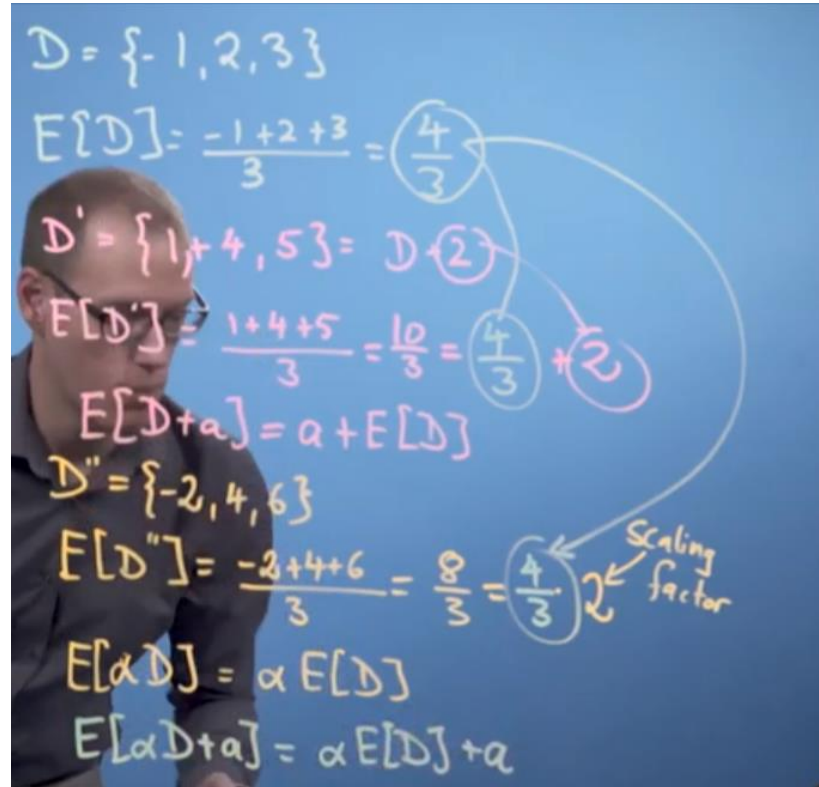 D = {-1, 2, 3}
E[D] = (-1 + 2 + 3)/3 = 4/3
D' = {1, + 4, 5} = D + 2
E[D'] = (1 + 4 + 5)/3 = 10/3 = 4/3 + 2
E[D+a] = a + E[D]
D'' = {-2, 4, 6}
E[D''] = (-2+4+6)/3 = 8/3 = 4/3 · 2
scaling
factor
E[αD] = α E[D]
E[αD+a] = α E[D] + a